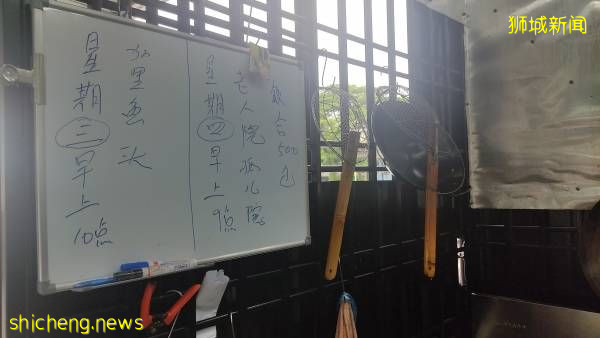 狮城新闻
星期三早上10点
加里鱼头
星期四早上9点
老人院孤儿院
饭合500包
shicheng.news